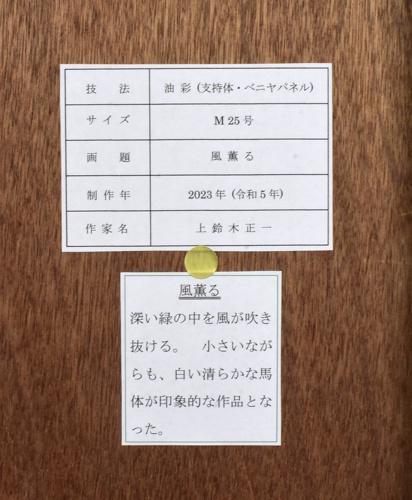 技 法 油 彩 (支持体・ベニヤパネル)
サ イ ズ M 25 号
画 題 風 薫 る
制 作 年 2023 年 (令和 5 年)
作 家 名 上 鈴 木 正 一
風薫る
深い緑の中を風が吹き
抜ける。 小さいなが
らも、白い清らかな馬
体が印象的な作品とな
った。